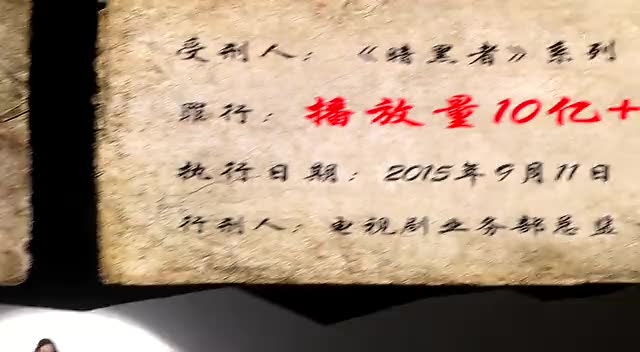 受刑人：《暗黑者》系列
罪行：播放量10亿+
执行日期：2015年9月11日
行刑人：电视剧业务部总监